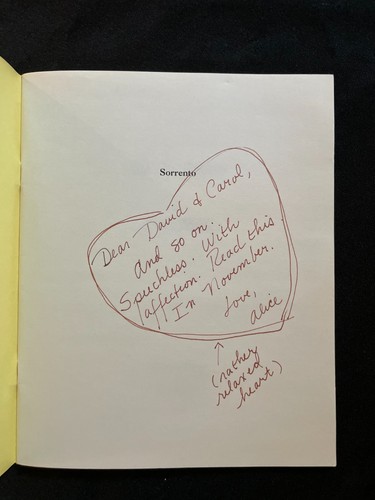 Sorrento
Dear David & Carol,
And so on.
Speechless. With
affection. Read this
In November.
Love,
Alice
(rather
relaxed
heart)